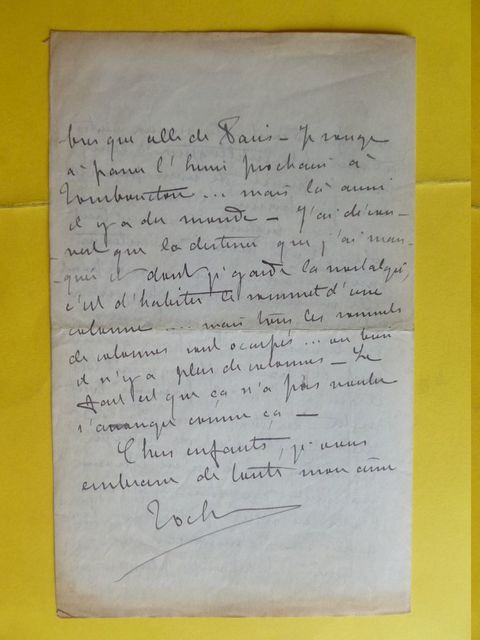 que celle de Paris — Je songe
à passer l'hiver prochain à
Tombouctou... mais là aussi
il y a du monde — J'ai décou-
vert que la destinée que j'ai man-
quée et dont je garde la nostalgie,
c'est d'habiter le sommet d'une
colonne .... mais tous les sommets
de colonnes sont occupés... ou bien
il n'y a plus de colonnes — Le
est que ça n'a pas voulu
s'arranger comme ça —
Chers enfants, je vous
embrasse de toute mon âme